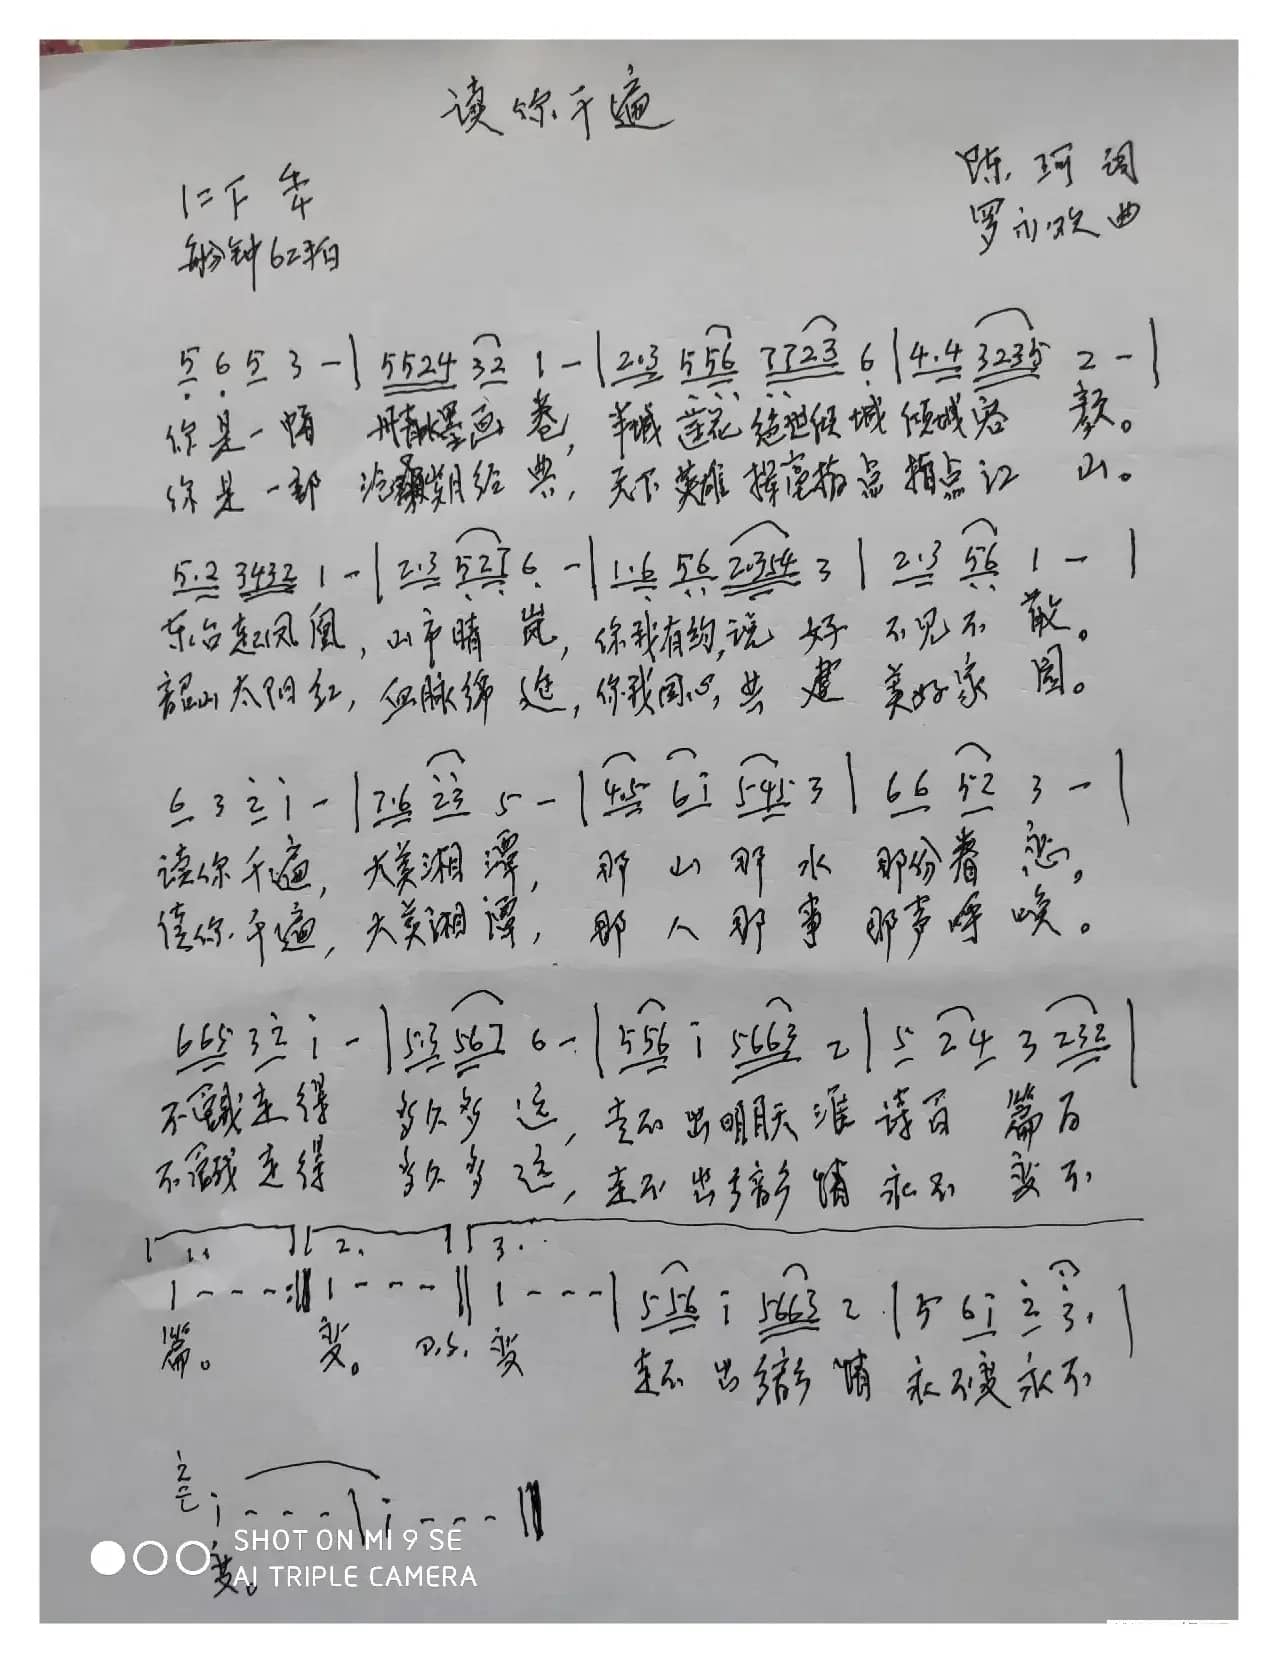 读你千遍
1=F 4/4
陈珂词
每分钟62拍
罗永欢曲
5 6 5 3 - | 5524 32 1 - | 2.3 556 7723 6 | 4.4 3235 2 - |
你是一幅 丹青水墨画卷, 羊城莲花绝世倾城倾城容颜。
你是一部 沧桑岁月经典, 天下英雄挥毫指点指点江山。
5.2 3432 1 - | 2.3 527 6 - | 1.6 56 2354 3 | 2.3 56 1 - |
东台起凤凰, 山市晴岚, 你我有约,说好 不见不散。
韶山太阳红, 血脉绵延, 你我同心,共建 美好家园。
6 3 2 1 - | 7.6 23 5 - | 45 61 545 3 | 66 52 3 - |
读你千遍, 大美湘潭, 那山那水 那份眷恋。
读你千遍, 大美湘潭, 那人那事 那声呼唤。
665 32 1 - | 53 567 6 - | 556 1 5663 2 | 5 24 3 232 |
不管我走得 多久多远, 走不出明天淮诗百篇百
不管我走得 多久多远, 走不出乡音乡情永不变不
1. 2. 3.
1 - - - :|| 1 - - - || 1 - - - | 556 1 5663 2 | 5 61 2 3. |
篇。 变。 D.S. 变 走不出乡音乡情 永不变永不
2 1 - - - | 1 - - - ||
变。
SHOT ON MI 9 SE
AI TRIPLE CAMERA